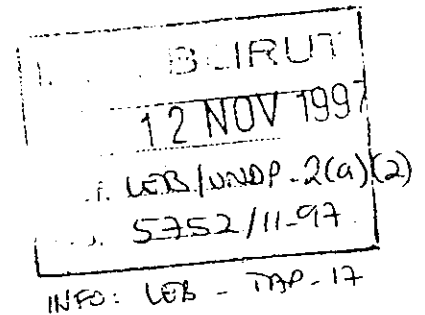 BEIRUT
12 NOV 1997
LEB/UNDP-2(a)(2)
5752/11-97
INFO: LEB - TAP-17